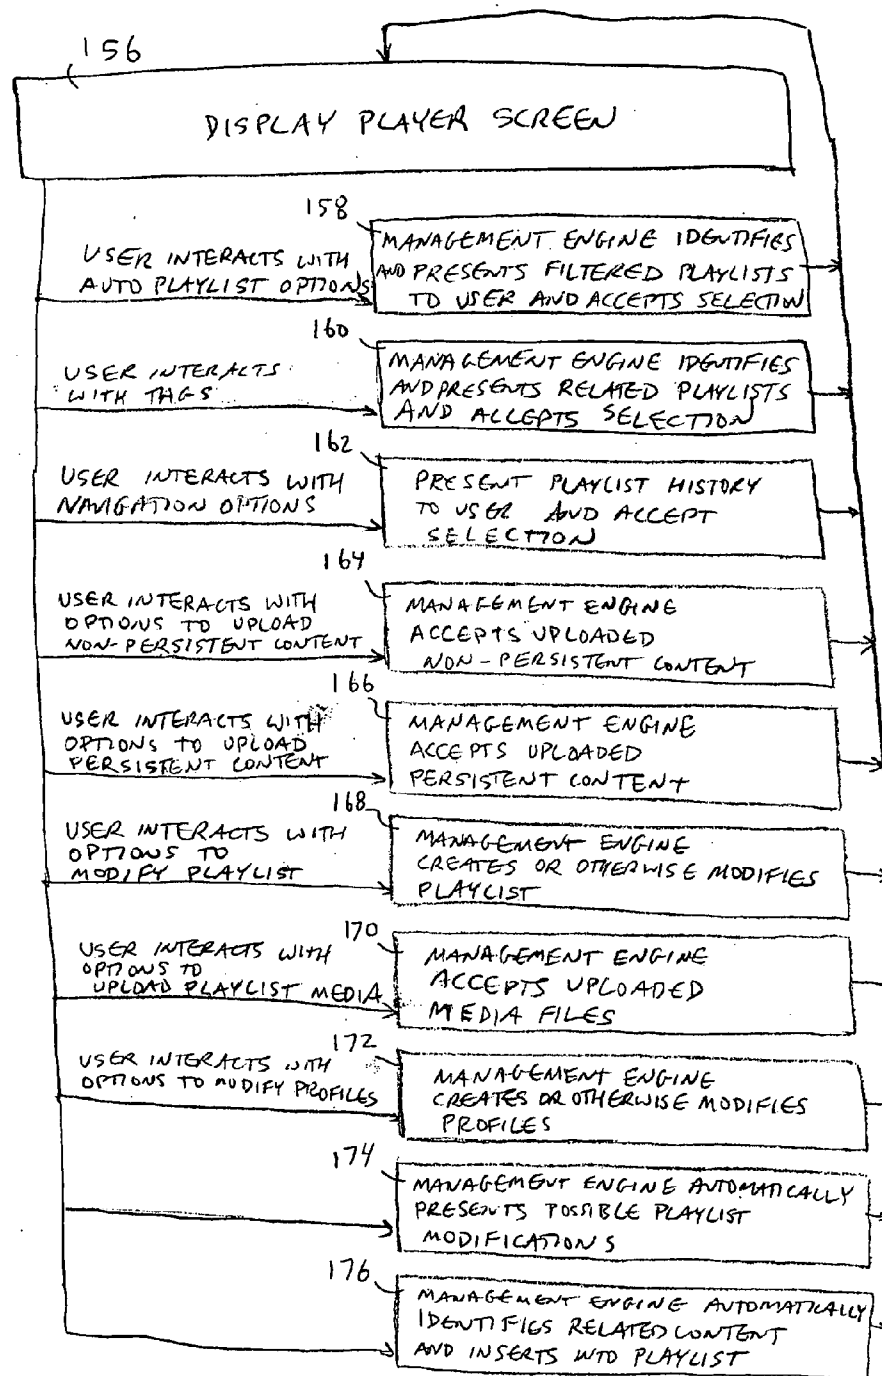 156
DISPLAY PLAYER SCREEN
158
USER INTERACTS WITH
AUTO PLAYLIST OPTIONS
MANAGEMENT ENGINE IDENTIFIES
AND PRESENTS FILTERED PLAYLISTS
TO USER AND ACCEPTS SELECTION
160
USER INTERACTS
WITH TAGS
MANAGEMENT ENGINE IDENTIFIES
AND PRESENTS RELATED PLAYLISTS
AND ACCEPTS SELECTION
162
USER INTERACTS WITH
NAVIGATION OPTIONS
PRESENT PLAYLIST HISTORY
TO USER AND ACCEPT
SELECTION
164
USER INTERACTS WITH
OPTIONS TO UPLOAD
NON-PERSISTENT CONTENT
MANAGEMENT ENGINE
ACCEPTS UPLOADED
NON-PERSISTENT CONTENT
166
USER INTERACTS WITH
OPTIONS TO UPLOAD
PERSISTENT CONTENT
MANAGEMENT ENGINE
ACCEPTS UPLOADED
PERSISTENT CONTENT
168
USER INTERACTS WITH
OPTIONS TO
MODIFY PLAYLIST
MANAGEMENT ENGINE
CREATES OR OTHERWISE MODIFIES
PLAYLIST
170
USER INTERACTS WITH
OPTIONS TO
UPLOAD PLAYLIST MEDIA
MANAGEMENT ENGINE
ACCEPTS UPLOADED
MEDIA FILES
172
USER INTERACTS WITH
OPTIONS TO MODIFY PROFILES
MANAGEMENT ENGINE
CREATES OR OTHERWISE MODIFIES
PROFILES
174
MANAGEMENT ENGINE AUTOMATICALLY
PRESENTS POSSIBLE PLAYLIST
MODIFICATIONS
176
MANAGEMENT ENGINE AUTOMATICALLY
IDENTIFIES RELATED CONTENT
AND INSERTS INTO PLAYLIST